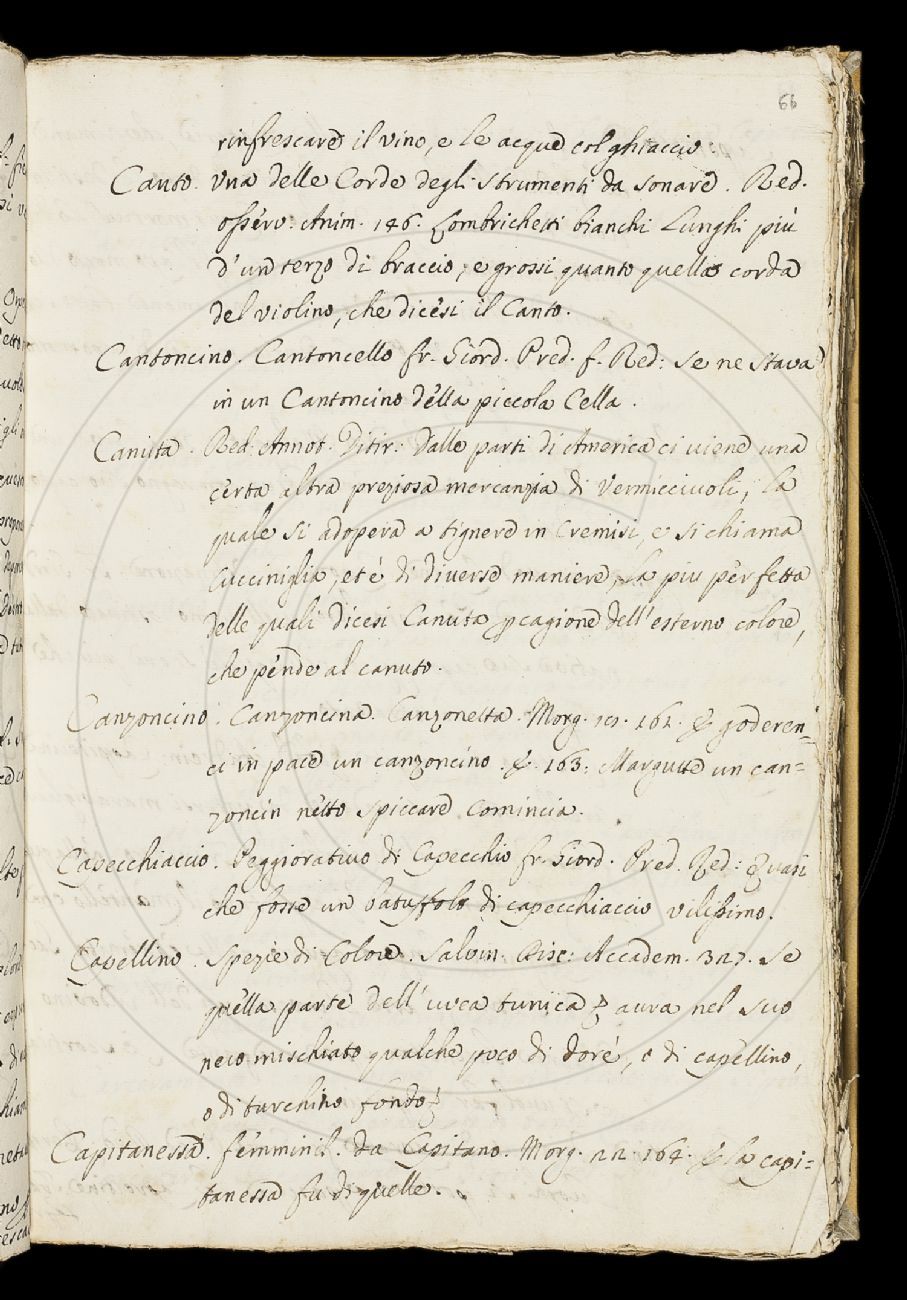 66
rinfrescare il vino, e le acque col ghiaccio.
Canto. Una delle Corde degli strumenti da sonare. Red.
osserv: Anim. 146. Lombrichetti bianchi Lunghi più
d'un terzo di braccio, e grossi quanto quella corda
del violino, che dicesi il Canto.
Cantoncino. Cantoncello fr. Giord. Pred. f. Red: se ne stava
in un Cantoncino della piccola Cella.
Canuta. Red: Annot. Ditir: dalle parti di America ci viene una
certa altra preziosa mercanzia di vermicciuoli, la
quale si adopera a tignere in Cremisi, e si chiama
Cucciniglia, et é di diverse maniere, la piu perfetta
delle quali dicesi Canuta p cagione dell'esterno colore,
che pende al canuto.
Canzoncino. Canzoncina. Canzonetta. Morg. 19. 162. E goderen-
ci in pace un canzoncino. E. 163: Margutte un can=
zoncin netto spiccare comincia.
Capecchiaccio. Peggiorativo di Capecchio fr. Giord. Pred. Red: Quasi
che fosse un batuffolo di capecchiaccio vilissimo.
Capellino. Spezie di Colore. Salvin. Disc: Accadem. 327. se
quella parte dell'uvea tunica aura nel suo
nero mischiato qualche poco di doré, o di capellino,
o di turchino fondo
Capitanessa. femminil. da Capitano. Morg. 22. 164. E la capi=
tanessa fu di quelle.